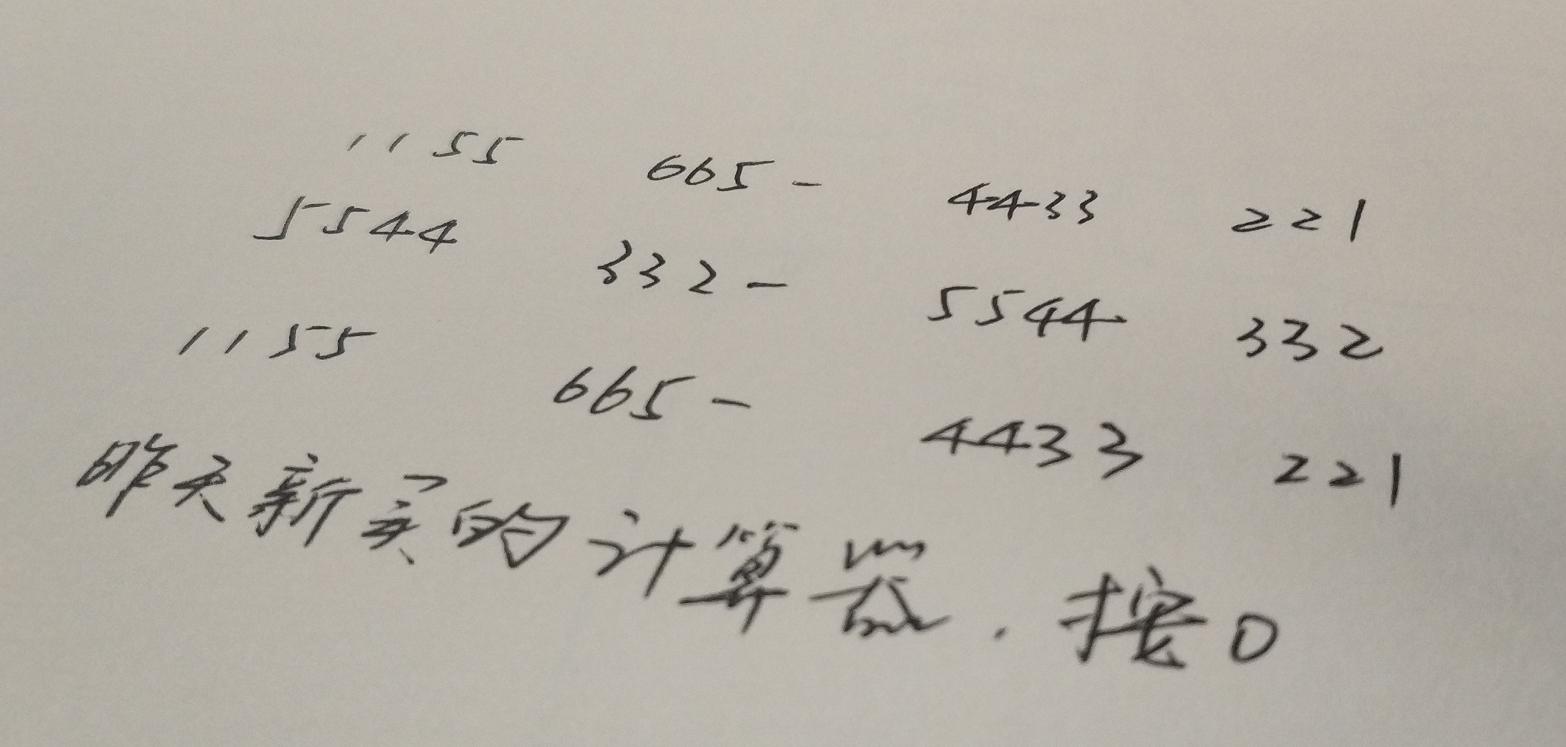 1155 665- 4433 221
5544 332- 5544 332
1155 665- 4433 221
昨天新买的计算器．按0